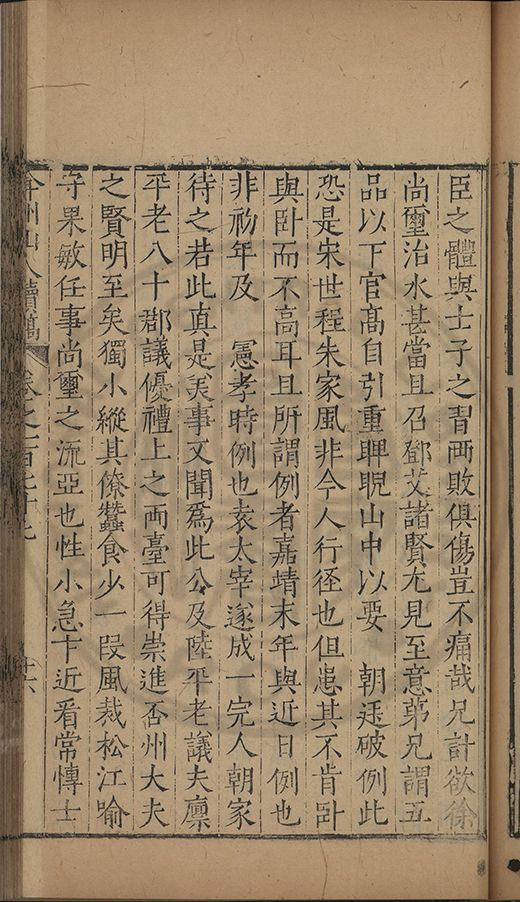 臣之體與士子之習兩敗俱傷豈不痛哉兄計欲徐
尚璽治水甚當且召鄧艾諸賢尤見至意第兄謂五
品以下官高自引重睥睨山中以要　朝廷破例此
恐是宋世程朱家風非今人行徑也但患其不肯臥
與臥而不高耳且所謂例者嘉靖末年與近日例也
非初年及　憲孝時例也袁太宰遂成一完人朝家
待之若此真是美事又聞爲此公及陸平老議夫廩
平老八十郡議優禮上之兩臺可得崇進否州大夫
之賢明至矣獨小縱其僚蠶食少一段風裁松江喻
守果敏任事尚璽之流亞也性小急卞近看常愽士
弇州山人續稿　卷之一百七十七　廿六